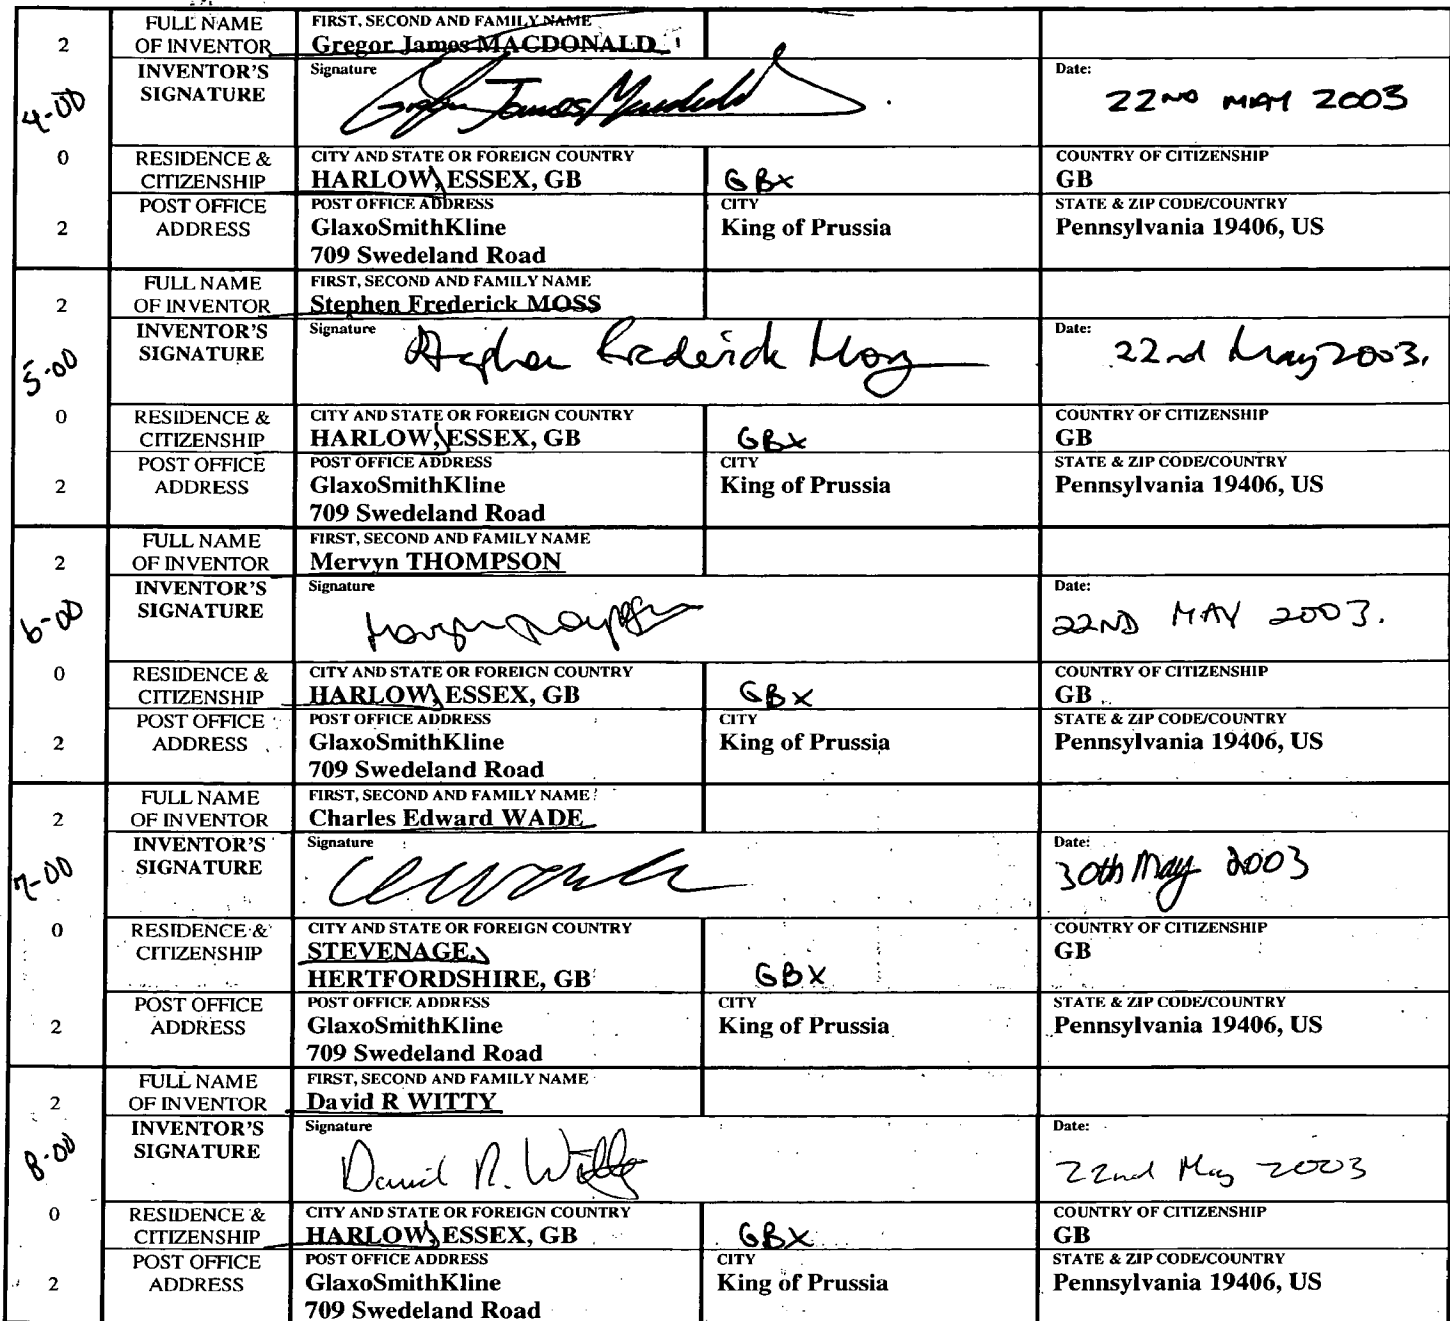 2 FULL NAME OF INVENTOR FIRST, SECOND AND FAMILY NAME
Gregor James MACDONALD
4-00 INVENTOR'S SIGNATURE Signature Gregor James Macdonald Date: 22ND MAY 2003
0 RESIDENCE & CITIZENSHIP CITY AND STATE OR FOREIGN COUNTRY
HARLOW, ESSEX, GB GBX COUNTRY OF CITIZENSHIP
GB
2 POST OFFICE ADDRESS POST OFFICE ADDRESS
GlaxoSmithKline
709 Swedeland Road CITY
King of Prussia STATE & ZIP CODE/COUNTRY
Pennsylvania 19406, US
2 FULL NAME OF INVENTOR FIRST, SECOND AND FAMILY NAME
Stephen Frederick MOSS
5-00 INVENTOR'S SIGNATURE Signature Stephen Frederick Moss Date: 22nd May 2003.
0 RESIDENCE & CITIZENSHIP CITY AND STATE OR FOREIGN COUNTRY
HARLOW, ESSEX, GB GBX COUNTRY OF CITIZENSHIP
GB
2 POST OFFICE ADDRESS POST OFFICE ADDRESS
GlaxoSmithKline
709 Swedeland Road CITY
King of Prussia STATE & ZIP CODE/COUNTRY
Pennsylvania 19406, US
2 FULL NAME OF INVENTOR FIRST, SECOND AND FAMILY NAME
Mervyn THOMPSON
6-00 INVENTOR'S SIGNATURE Signature Mervyn Thompson Date: 22ND MAY 2003.
0 RESIDENCE & CITIZENSHIP CITY AND STATE OR FOREIGN COUNTRY
HARLOW, ESSEX, GB GBX COUNTRY OF CITIZENSHIP
GB
2 POST OFFICE ADDRESS POST OFFICE ADDRESS
GlaxoSmithKline
709 Swedeland Road CITY
King of Prussia STATE & ZIP CODE/COUNTRY
Pennsylvania 19406, US
2 FULL NAME OF INVENTOR FIRST, SECOND AND FAMILY NAME
Charles Edward WADE
7-00 INVENTOR'S SIGNATURE Signature Date: 30th May 2003
0 RESIDENCE & CITIZENSHIP CITY AND STATE OR FOREIGN COUNTRY
STEVENAGE,
HERTFORDSHIRE, GB GBX COUNTRY OF CITIZENSHIP
GB
2 POST OFFICE ADDRESS POST OFFICE ADDRESS
GlaxoSmithKline
709 Swedeland Road CITY
King of Prussia STATE & ZIP CODE/COUNTRY
Pennsylvania 19406, US
2 FULL NAME OF INVENTOR FIRST, SECOND AND FAMILY NAME
David R WITTY
8-00 INVENTOR'S SIGNATURE Signature David R. Witty Date: 22nd May 2003
0 RESIDENCE & CITIZENSHIP CITY AND STATE OR FOREIGN COUNTRY
HARLOW, ESSEX, GB GBX COUNTRY OF CITIZENSHIP
GB
2 POST OFFICE ADDRESS POST OFFICE ADDRESS
GlaxoSmithKline
709 Swedeland Road CITY
King of Prussia STATE & ZIP CODE/COUNTRY
Pennsylvania 19406, US